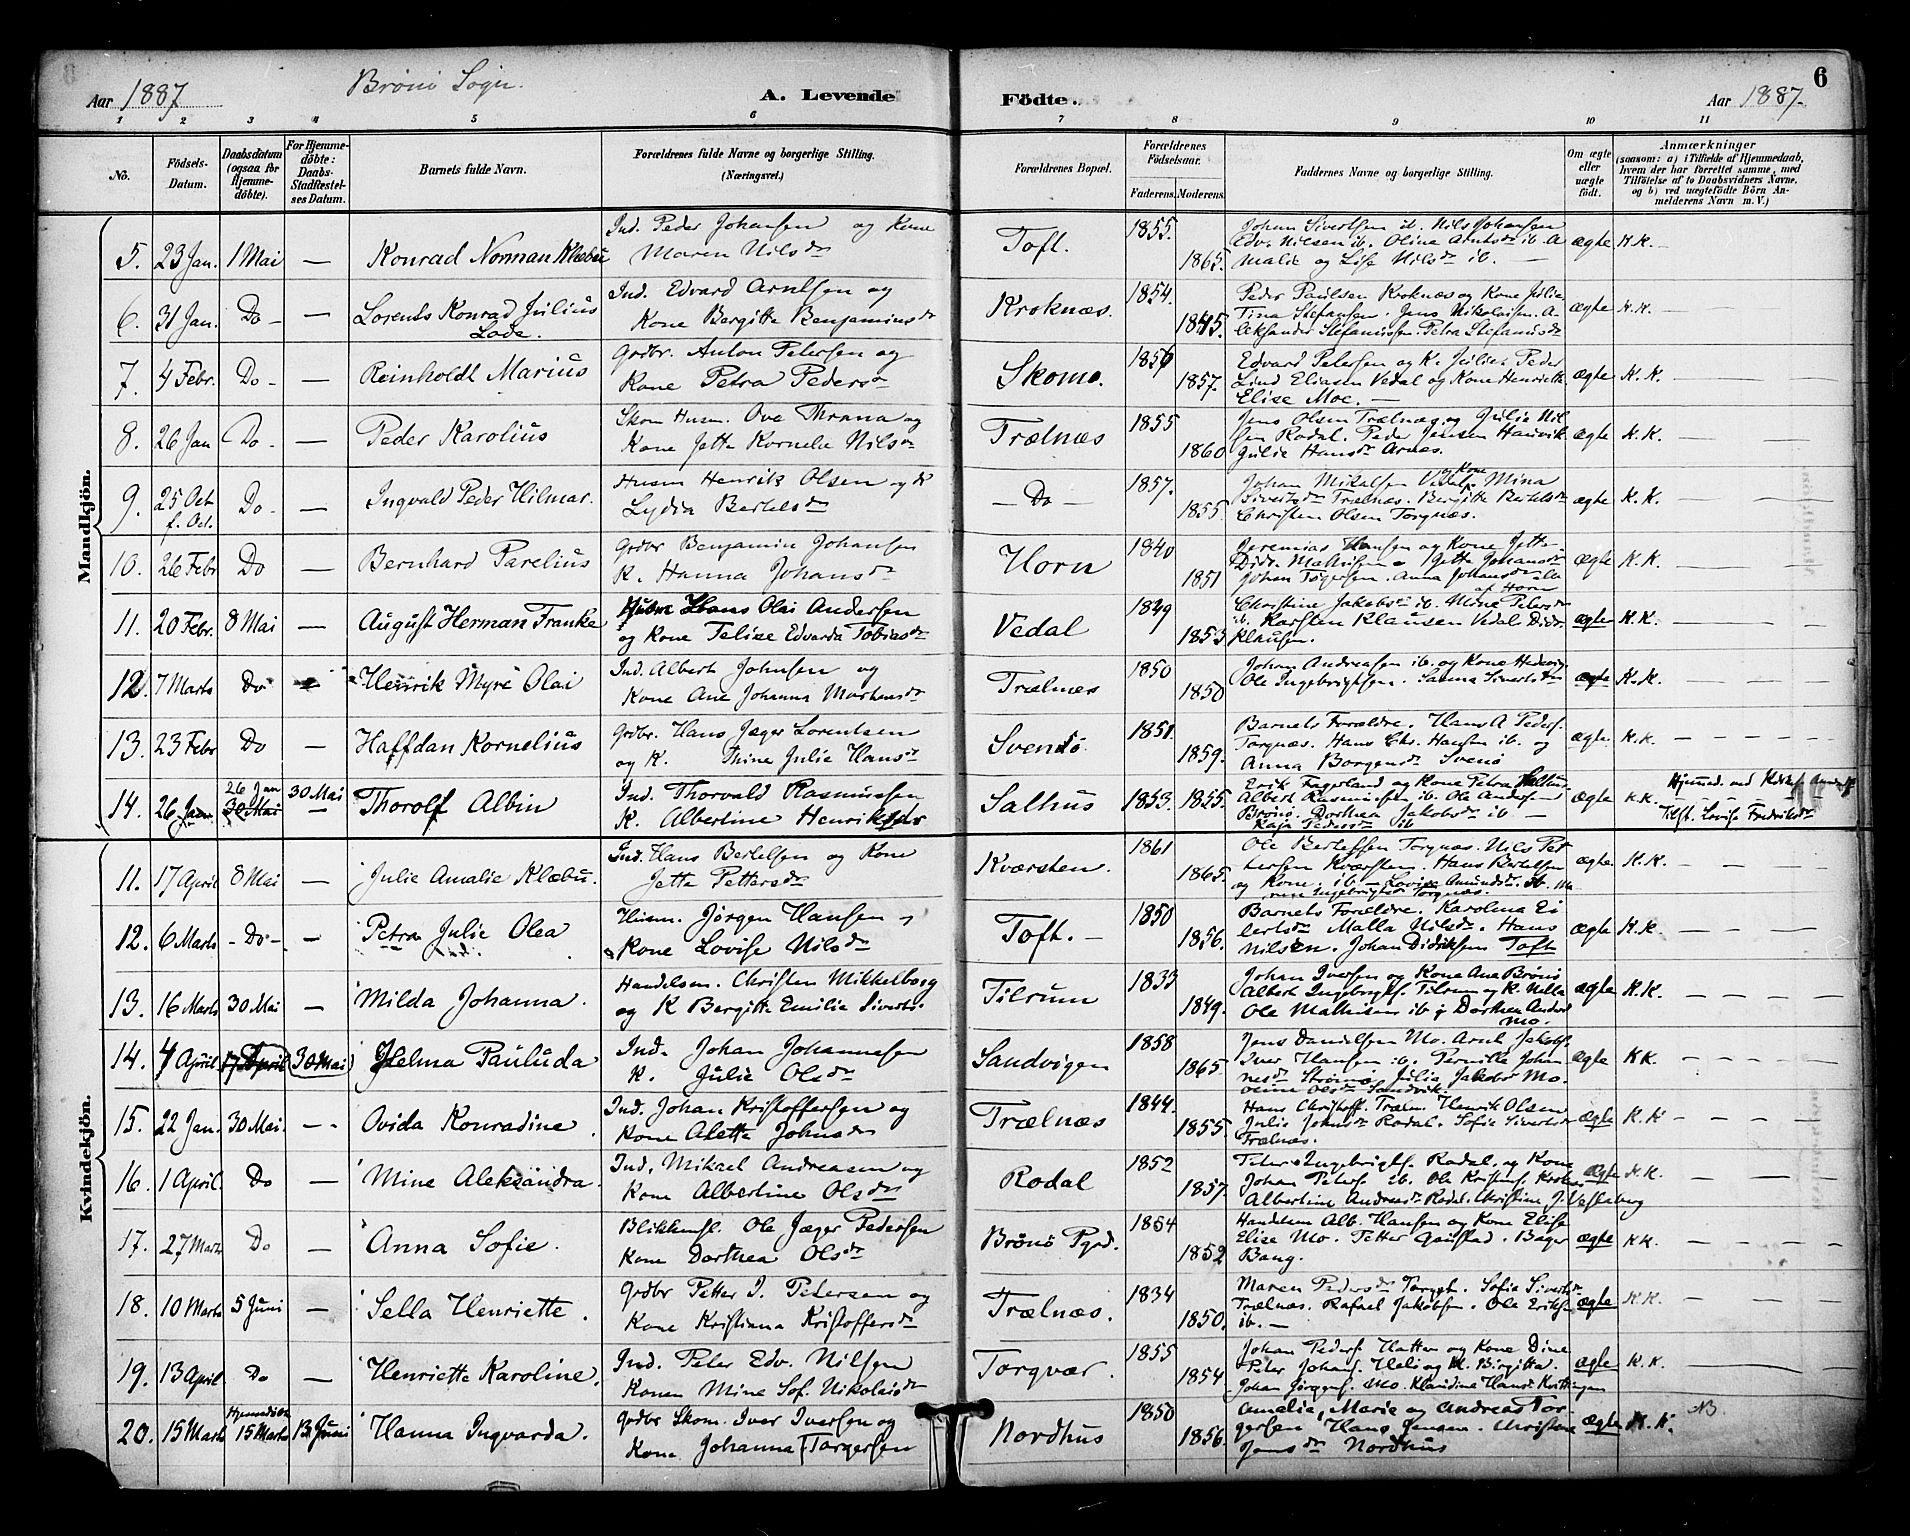 6
Aar 1887 Brønø Sogn. A. Levende Födte. Aar 1887.
1 2 3 4 5 6 7 8 9 10 11
No. Födsels-Datum. Daabsdatum (ogsaa for Hjemmedöbte). For Hjemmedöbte: Daabs-Stadfestelses Datum. Barnets fulde Navn. Forældrenes fulde Navne og borgerlige Stilling. (Næringsvei.) Forældrenes Bopæl. Forældrenes Födselsaar. Faderens. Moderens. Faddernes Navne og borgerlige Stilling. Om ægte eller uægte födt. Anmærkninger (saasom: a) i Tilfælde af Hjemmedaab, hvem der har forrettet samme, med Tilföielse af to Daabsvidners Navne, og b) ved uægtefödte Börn Anmelderens Navn m. V.)
Mandkjön.
5. 23 Jan. 1 Mai — Konrad Norman Klæbu Ind. Peder Johansen og Kone
Maren Nilsdr Toft. 1855. 1865. Johan Sivertsen ib. Nils Johansen
Edv. Nilsen ib. Olina Arntsdr ib. A
malie og Lise Nilsdr ib. — ægte K.K. —
6. 31 Jan. Do — — Lorents Konrad Julius
Lode. Ind. Edvard Arntsen og
Kone Bergitte Benjaminsdr Kroknæs. 1854. 1845. Peder Paulsen Kroknæs og Kone Julia
Tina Stefansen. Jens Nikolaisen. A-
leksander Stefanussen. Petra Stefansdr ægte K.K. —
7. 4 Febr. Do — — Reinholdt Marius Grdbr. Anton Petersen og
Kone Petra Pedersdr Skomo. 1856 1857. Edvard Petersen og K. Julie. Peder
Lind Eliasen Vedal og Kone Henriette
Elise Moe. — ægte K.K. —
8. 26 Jan Do — — Peder Karolius Skom Husm. Ove Thrana og
Kone Jette Kornelia Nilsdr Trælnæs 1855 1860 Jens Olsen Trælnæs og Julie Nil
sen Rodal. Peder Jensen Hamvik
Julie Hansdr Arnæs. ægte K.K. —
9. 25 Oct
f. Oct. Do — — Ingvald Peder Hilmar. Husm Henrik Olsen og K
Lydia Bertelsdr — Do — 1857. 1855. Johan Mikalsen Vedal og Kone Mina
Sivertsdr Trælnæs. Bergitte Bertelsdr
Christen Olsen Torgnæs. ægte K.K. —
10. 26 Febr Do — Bernhard Parelius Grdbr Benjamin Johansen
K. Hanna Johansdr Horn 1840 1851 Jeremias Hansen og Kone Jette
Didr. Mathisen. Jette Johansdr
Johan Torgersen. Anna Johansdr
af Horn ægte K.K. —
11. 20 Febr. 8 Mai — August Herman Franke Husm Hans Olai Andersen
og Kone Telise Edvarda Tobiasdr Vedal 1849 1853 Christine Jakobsdr ib. Mine Petersdr
ib. Karsten Klausen Vedal Didr.
Klausen. ægte K.K. —
12. 7 Marts Do — Henrik Myre Olai Ind. Albert Johnsen og
Kone Ane Johanna Mortensdr Trælnæs 1850 1850 Johan Andreassen ib. og Kone Hedevig
Ole Ingebrigtsen. Sanna Sivertsdr ægte K.K. —
13. 23 Febr Do — Haffdan Kornelius Grdbr. Hans Jæger Lorentsen
og K. Trine Julie Hansdr Svenø. 1851. 1859. Barnets Forældre. Hans A Peders.
Torgnæs. Hans Chr. Hansen ib. og
Anna Borgensdr Svenø ægte K.K. —
14. 26 Jan. 26 Jan
30 Mai 30 Mai Thorolf Albin Ind. Thorvald Rasmussen
K. Albertine Henriksdr Salhus 1853. 1855. Erik Fagerland og Kone Petra Salhus
Albert Rasmussen ib. Ole Anders—
Brønø. Dorthea Jakobsdr ib. —
Kaja Pedersdr ib ægte K.K. Hjemmed. ved
Tilst. Lovise Fredriksdr
Kvindekjön.
11. 17 April 8 Mai — Julie Amalie Klæbu. Ind. Hans Bertelsen og Kone
Jette Pettersdr Kværsten. 1861 1865. Ole Bertelsen Torgnæs. Nils Pet
tersen Kværsten. Hans Bertelsen
og Kone ib — Lovise Amundsdr. ib. Ma
ren Ingebrigtsdr Torgnæs. ægte K.K. —
12. 6 Marts — Do — — Petra Julie Olea Husm. Jørgen Hansen og
Kone Lovise Nilsdr Toft. — 1850 1856. Barnets Forældre. Karolina Ei
lertsdr Malla Nilsdr. Hans
Nilsen. Johan Didriksen Toft ægte K.K. —
13. 16 Marts 30 Mai — Milda Johanna. Handelsm. Christen Mikkelborg
og K Bergitte Emilia Siverts. Tilrum 1833 1849. Johan Iversen og Kone Ane Brønø
Albert Ingebrigts. Tilrum og K. Nella
Ole Mathisen ib og Dorthea Anders
Mo. ægte K.K. —
14. 4 April 17 April 30 Mai Helma Pauluda Ind. Johan Johannesen
K. Julie Olsdr Sandvigen 1858 1865. Jens Danielsen Mo. Arnt Jakobs.
Iver Hansen ib. Pernille Johan
nesdr Strømø Julia Jakobsdr Mo.
Oline Olsdr Sandvik. ægte KK —
15. 22 Jan. 30 Mai. — Ovida Konradine. Ind. Johan Kristoffersen og
Kone Alette Johnsdr Trælnæs 1844. 1855. Hans Christoff. Træln. Henrik Olsen
Julie Johnsdr Rodal. Sofie Sivertsdr
Trælnæs. ægte K.K —
16. 1 April Do — Mine Aleksandra. Ind. Mikael Andreasen og
Kone Albertine Olsdr Rodal 1852 1857. Peter Ingebrigts. Rodal. og Kone
Johan Peters ib. Ole Kristens. Kroknæs
Albertine Andreasdr Rodal. Christine J. Vesterberg ægte K.K. —
17. 27 Marts Do — Anna Sofie. Blikkensl. Ole Jæger Pedersen
Kone Dorthea Olsdr Brönö Pgrd. 1854 1852 Handelsm Alb. Hansen og Kone Elise
Elise Mo. Petter Gaustad. Bager
Bang. ægte KK. —
18. 10 Marts 5 Juni — Sella Henriette. Grdbr Petter J. Petersen og
Kone Kristiana Kristoffersdr Trælnæs. 1834 1850. Maren Pedersdr Torggt. Sofia Sivertsdr
Trælnæs. Rafael Jakobsen. Ole Eriksen
ib. — ægte K.K. —
19. 13 April Do — Henriette Karoline. Ind. Peter Edv. Nilsen
Konen Mine Sof. Nikolaisdr Torgvær. 1855 1854 Johan Peders. Hatten og Kone Dine
Peter Johans. Heli og K. Birgitta.
Johan Jørgens. Mo. Klaudine Hansd. Kvitingen ægte K.K. —
20. 15 Marts Hjemmedøbt
15 Marts 13 Juni Hanna Ingvarda. Grdbr Skom. Iver Iversen og
Kone Johanna Torgersen Nordhus 1850 1856. Amalia, Marie og Andreas Tor-
gersen. Hans Jensen. Christine
Jensdr Nordhus ægte K.K. NB